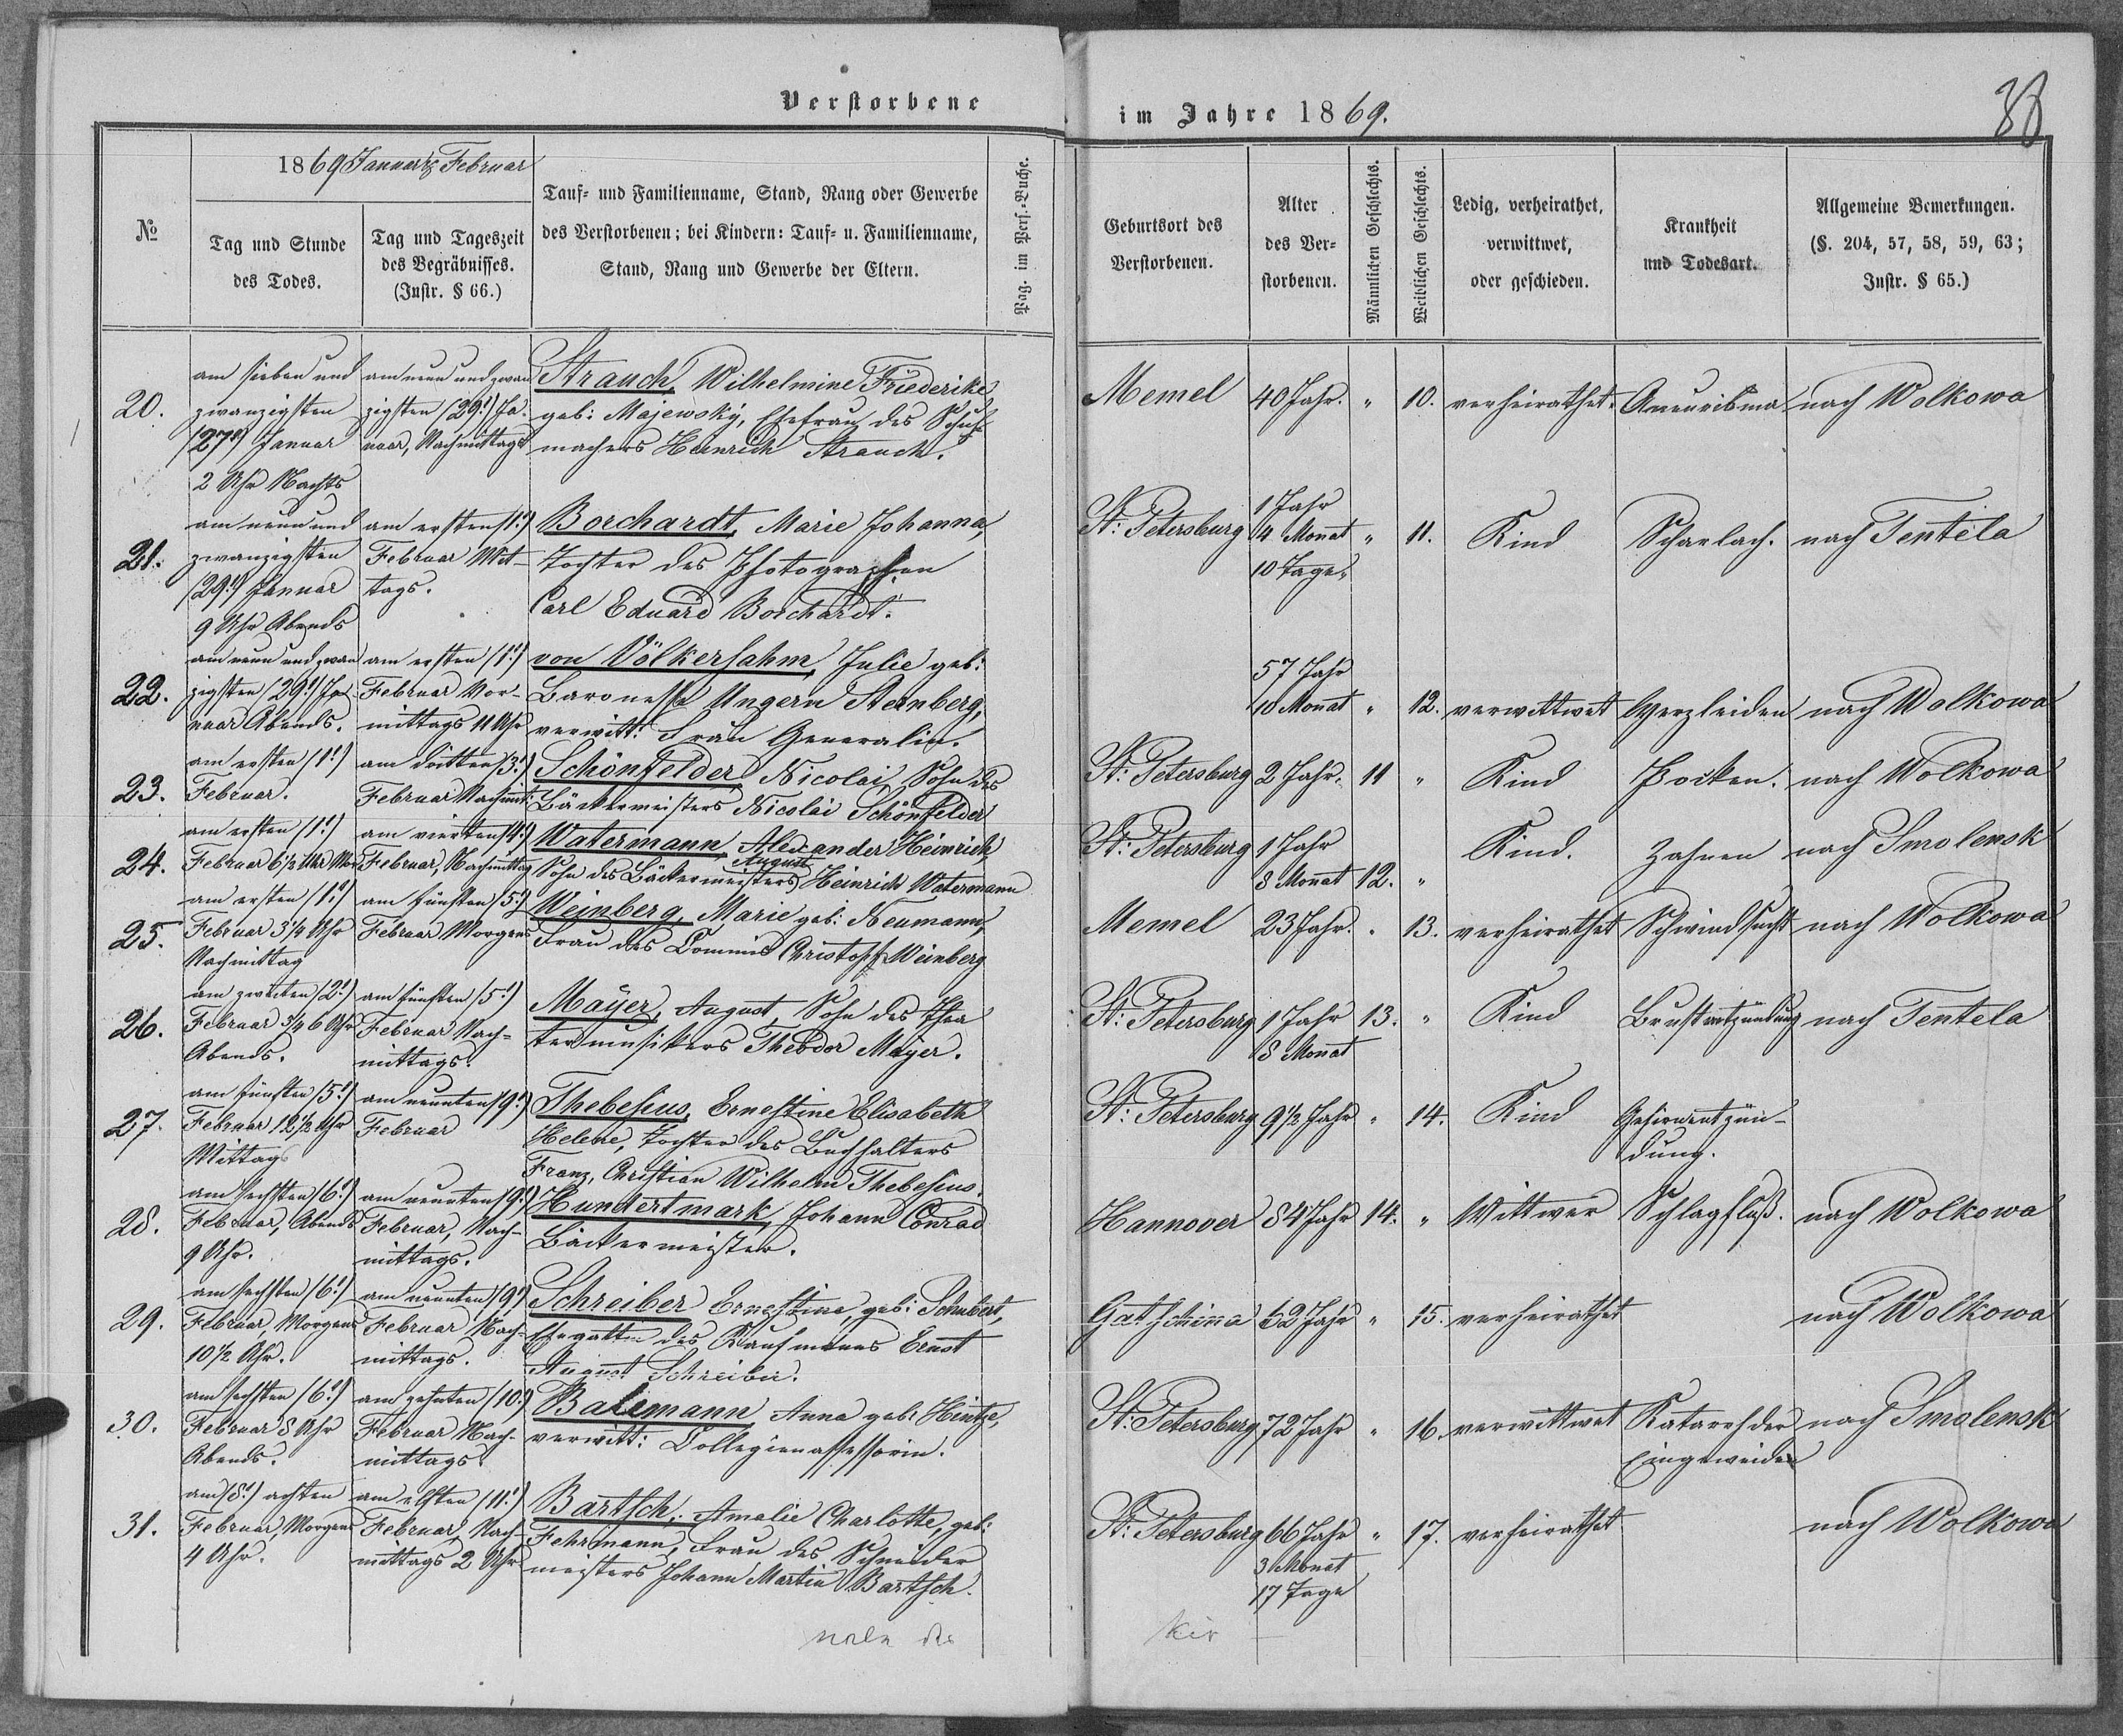 Verstorbene im Jahre 1869.
38
№
1869 Januar & Februar
Tag und Stunde des Todes.
Tag und Tageszeit des Begräbnisses. (Instr. § 66.)
Tauf- und Familienname, Stand, Rang oder Gewerbe des Verstorbenen; bei Kindern: Tauf- u. Familienname, Stand, Rang und Gewerbe der Eltern.
Pag. im Pers.-Buche.
Geburtsort des Verstorbenen.
Alter des Verstorbenen.
Männlichen Geschlechts.
Weiblichen Geschlechts.
Ledig, verheirathet, verwittwet, oder geschieden.
Krankheit und Todesart.
Allgemeine Bemerkungen. (§. 204, 57, 58, 59, 63; Instr. § 65.)
20.
am sieben und
zwanzigsten
(27ⁿ) Januar
2 Uhr Nachts
am neun und zwan
zigsten (29!) Ja-
nuar, Nachmittags
Strauch, Wilhelmine Friederike
geb: Majewsky, Ehefrau des Schuh
machers Heinrich Strauch.
Memel
40 Jahr.
" 10.
verheirathet.
Aneurisma
nach Wolkowa
21.
am neun und
zwanzigsten
(29!) Januar
9 Uhr Abends
am ersten (1!)
Februar Mit-
tags.
Borchardt, Marie Johanna,
Tochter des Photographen
Carl Eduard Borchardt.
St: Petersburg
1 Jahr
4 Monat
10 Tage.
" 11.
Kind
Scharlach.
nach Tentela
22.
am neun und zwan
zigsten (29!) Ja-
nuar Abends.
am ersten (1!)
Februar Vor-
mittags 11 Uhr
von Völkersahm, Julie geb:
Baronesse Ungern Sternberg,
verwitt: Frau Generalin.
57 Jahr
10 Monat
" 12.
verwittwet
Herzleiden
nach Wolkowa
23.
am ersten (1!)
Februar.
am dritten (3!)
Februar Nachmit:
Schönfelder, Nicolai, Sohn des
Bäckermeisters Nicolai Schönfelder
St: Petersburg
2 Jahr.
11 "
Kind
Pocken.
nach Wolkowa
24.
am ersten (1!)
Februar 6½ Uhr Mor.
am vierten (4!)
Februar, Nachmittag
Watermann, Alexander Heinrich,
Sohn des Bäckermeisters August Heinrich Watermann
St: Petersburg
1 Jahr
8 Monat
12. "
Kind.
Zahnen
nach Smolensk
25.
am ersten (1!)
Februar 3¼ Uhr
Nachmittag
am fünften (5!)
Februar Morgens
Weinberg, Marie geb: Neumann,
Frau des Commis Christoph Weinberg
Memel
23 Jahr.
" 13.
verheirathet
Schwindsucht
nach Wolkowa
26.
am zweiten (2!)
Februar ¾ 6 Uhr
Abends.
am fünften (5!)
Februar Nach-
mittags.
Mayer, August, Sohn des Thea
termusikers Theodor Mayer.
St: Petersburg
1 Jahr
8 Monat
13. "
Kind
Brustentzündung
nach Tentela
27.
am fünften (5!)
Februar 12½ Uhr
Mittags
am neunten (9!)
Februar
Thebesius, Ernestine Elisabeth
Helene, Tochter des Buchhalters
Franz, Christian Wilhelm Thebesius.
St: Petersburg
9½ Jahr
" 14.
Kind
Gehirnentzün-
dung.
28.
am sechsten (6!)
Februar, Abends
9 Uhr.
am neunten (9!)
Februar, Nach-
mittags.
Hundertmark, Johann Conrad
Bäckermeister.
Hannover
84 Jahr
14. "
Wittwer
Schlagfluß.
nach Wolkowa
29.
am sechsten (6!)
Februar, Morgens
10½ Uhr.
am neunten (9!)
Februar Nach-
mittags.
Schreiber Ernestine, geb: Schubert,
Ehegattin des Kaufmanns Ernst
August Schreiber.
Gatschina
62 Jahr
" 15.
verheirathet
nach Wolkowa
30.
am sechsten (6!)
Februar 8 Uhr
Abends.
am zehnten (10!)
Februar Nach-
mittags.
Balemann Anna geb: Hintze,
verwitt: Collegienassessorin.
St: Petersburg
72 Jahr
" 16.
verwittwet
Katarrh der
Eingeweide
nach Smolensk
31.
am (8!) achten
Februar, Morgens
4 Uhr.
am elften (11!)
Februar, Nach-
mittags 2 Uhr
Bartsch, Amalie Charlotte, geb:
Fehrmann, Frau des Schneider
meisters Johann Martin Bartsch.
St: Petersburg
66 Jahr
3 Monat
17 Tage
" 17.
verheirathet
nach Wolkowa